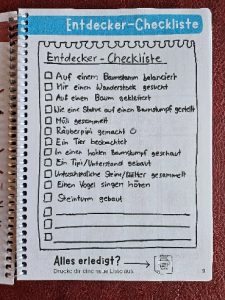 Entdecker-Checkliste
Entdecker-Checkliste
Auf einem Baumstamm balanciert
Mir einen Wanderstock gesucht
Auf einen Baum geklettert
Wie eine Statue auf einen Baumstumpf gestellt
Müll gesammelt
Räuberpipi gemacht ☺
Ein Tier beobachtet
In einen hohlen Baumstumpf geschaut
Ein Tipi/Unterstand gebaut
Unterschiedliche Steine/Blätter gesammelt
Einen Vogel singen hören
Steinturm gebaut
Alles erledigt?
Drucke dir eine neue Liste aus.
9